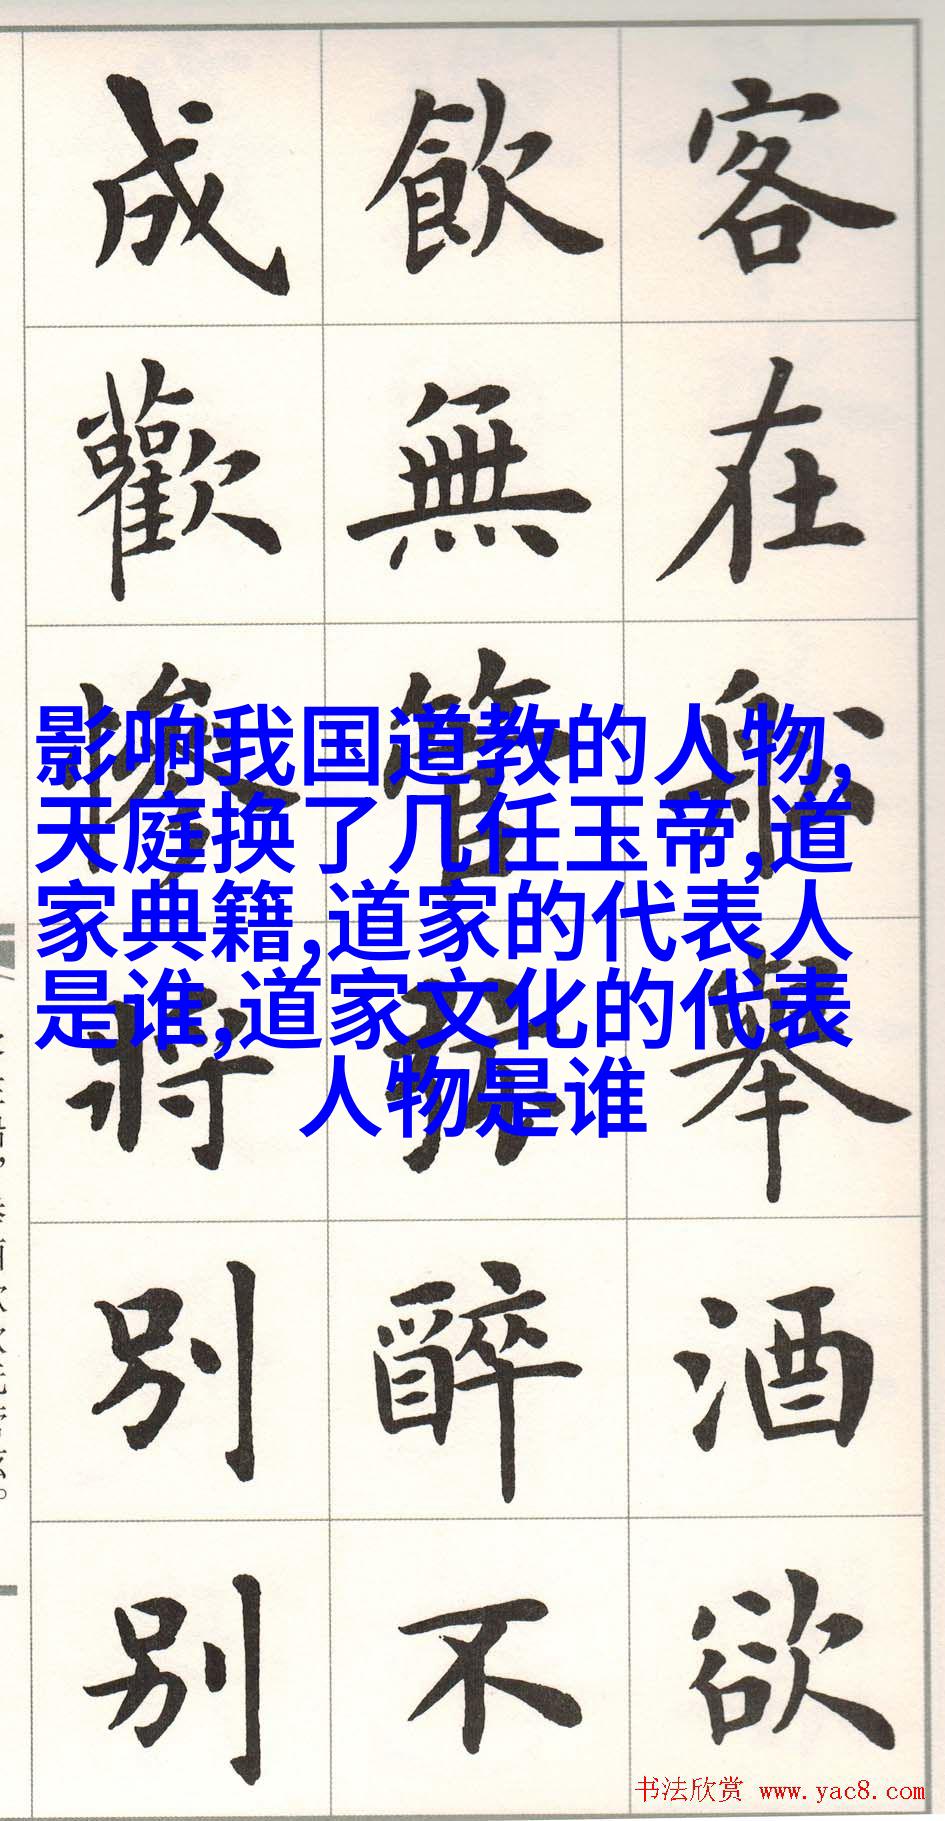 客在船舉酒欲
飲無管弦醉不
成歡慘將別別
影响我国道教的人物,
天庭换了几任玉帝,道
家典籍,道家的代表人
是谁,道家文化的代表
人物是谁
书法欣赏 www.yac8.com